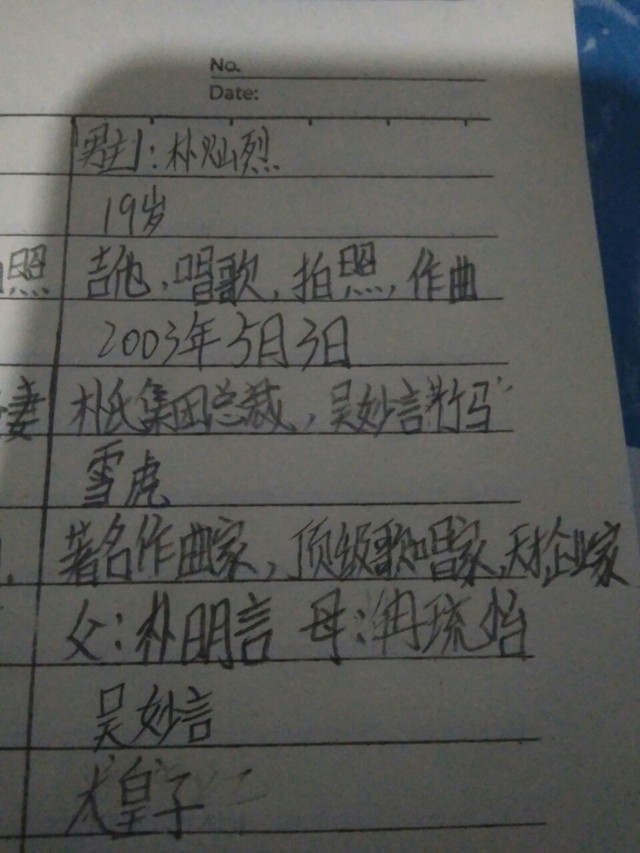 No.
Date:
男主1：朴灿烈
19岁
照 吉他，唱歌，拍照，作曲
2003年5月3日
妻 朴氏集团总裁，吴妙言竹马
雪虎
著名作曲家，顶级歌唱家，天才企业家
父：朴明言 母：冉琉怡
吴妙言
大皇子